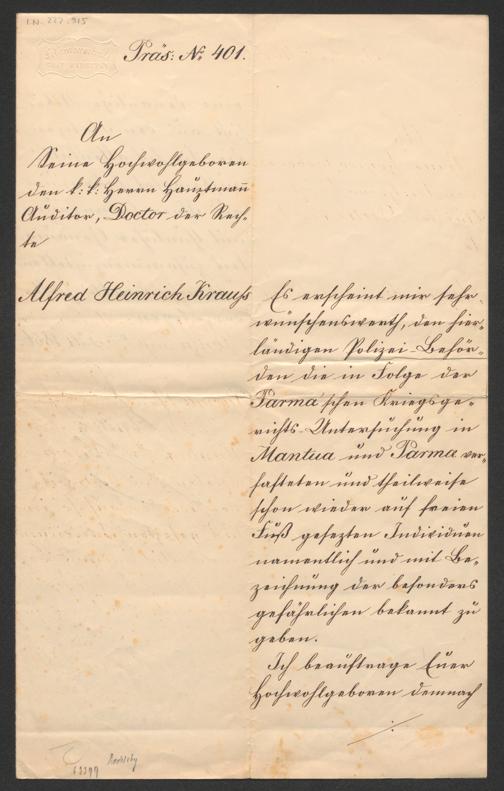 I.N. 227.915
Präs: No 401.
An
Seine Hochwohlgeboren
den k: k: Herrn Hauptmañ
Auditor, Doctor der Rech-
te
Alfred Heinrich Krauß
Es erscheint mir sehr
wünschenswerth, den hier-
ländigen Polizei-Behör-
den die in Folge der
Parma'schen Kriegsge-
richts-Untersuchung in
Mantua und Parma ver-
hafteten und theilweise
schon wieder auf freien
Fuß gesezten Individuen
namentlich und mit Be-
zeichnung der besonders
gefährlichen bekannt zu
geben.
Ich beauftrage Euer
Hochwohlgeboren demnach
./.